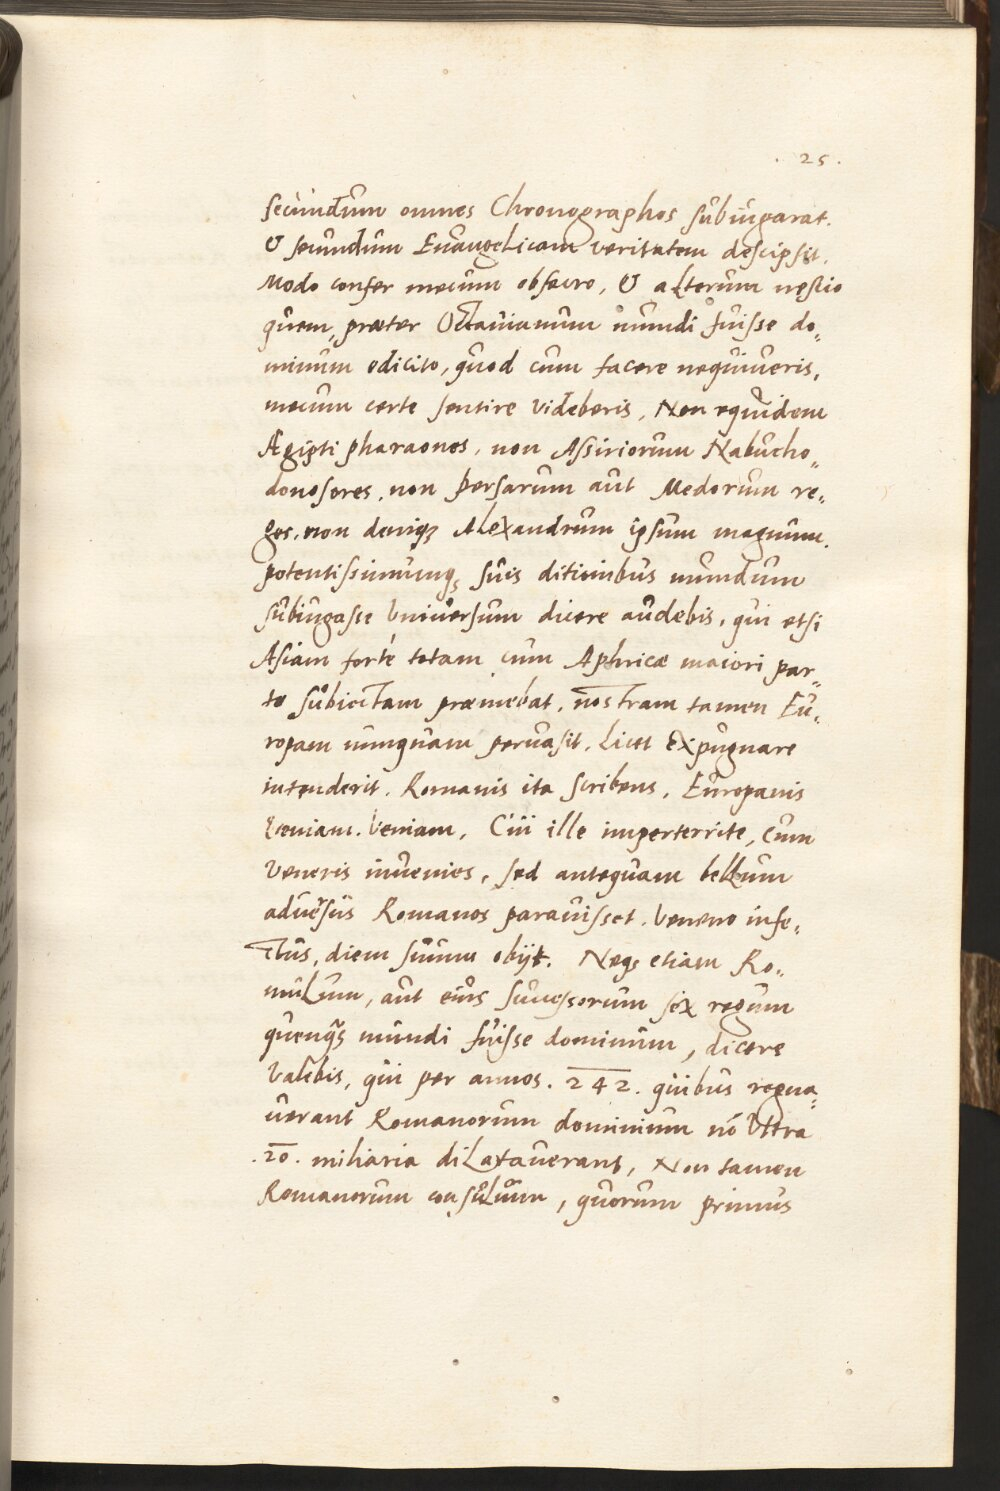 . 25 .
secundum omnes Chronographos subiugarat.
& secundum Euangelicam veritatem descipsit.
Modo confer mecum obsecro, & alterum nęscio
quem, præter Octauianum mundi fuisse do„
minum edicito, quod cum facere nequiueris,
mecum certe sentire videberis, Non equidem
Ægipti pharaones, non Assiriorum Nabucho„
donosores, non persarum aut Medorum re„
ges, non deniqꝫ Alexandrum ipsum magnum.
potentissimumqꝫ suis ditionibus mundum
subiugasse vniuersum dicere audebis, qui etsi
Asiam forté totam cum Aphricæ maiori par„
te subiectam præmebat, nostram tamen Eu„
ropam nunquam peruasit, licet expugnare
intenderit. Romanis ita scribens, Europanis
veniam. veniam, Cui ille imperterrite, cum
veneris inuenies, sed antequam bellum
aduersus Romanos parauisset. veneno infe„
ctus, diem suum obijt. Neqꝫ etiam Ro„
mulum, aut eius successorum sex regum
quenqꝫ mundi fuisse dominum, dicere
valebis, qui per annos. 242. quibus regna„
uerant Romanorum dominium nō vltra
.20. miliaria dilatauerant, Non tamen
Romanorum consulum, quorum primus